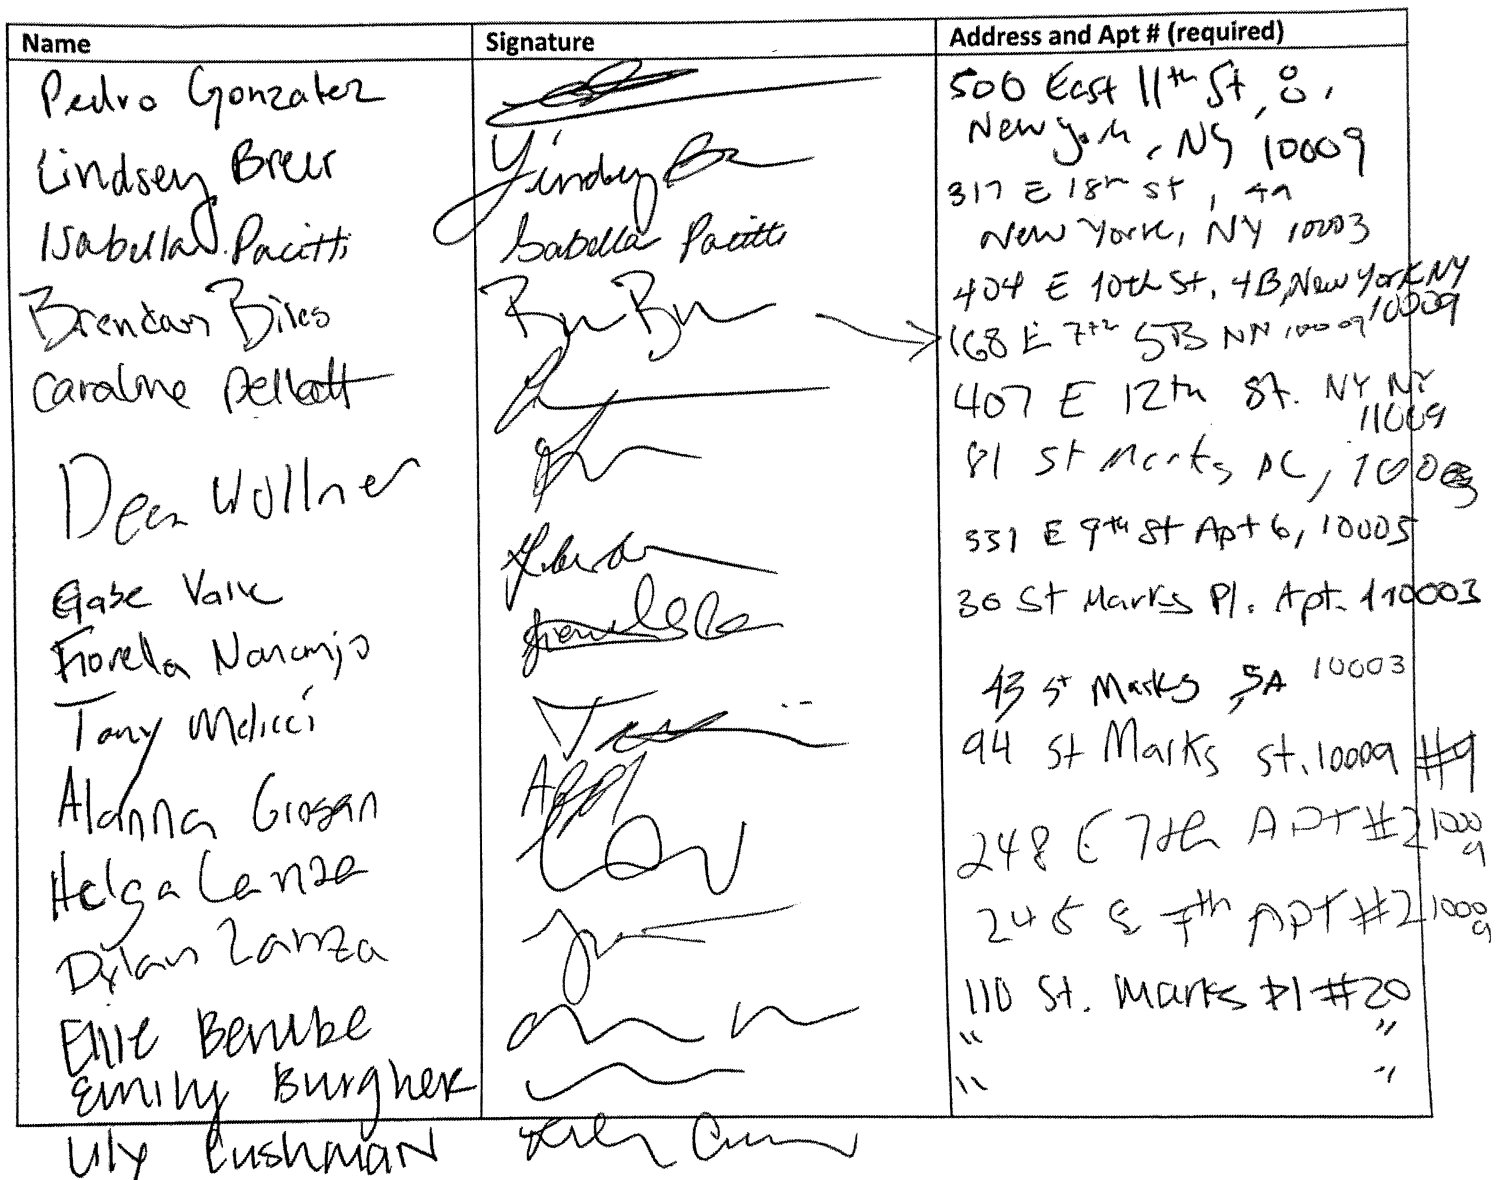 Name Signature Address and Apt # (required)
Pedro Gonzalez 500 East 11th St, 8,
New York, NY 10009
Lindsey Breer Lindsey 317 E 18th St, 4A
New York, NY 10003
Isabella Pacitti Isabella Pacitti 404 E 10th St, 4B, New York NY
10009
Brendan Bires 168 E 7th 5B NY 10009
Caroline 407 E 12th St. NY NY
11009
Dean Wollner 81 St Marks PL, 10003
Gabe 331 E 9th St Apt 6, 10003
Fiorella Naranjo 30 St Marks Pl. Apt. 1 10003
Tony 43 St Marks 5A 10003
Alanna Grogan 94 St Marks St. 10009 #9
Helga Lanza 248 E 7th APT #2 10009
Dylan Lanza 248 E 7th APT #2 10009
Ellie Berube 110 St. Marks Pl #20
Emily Burgher " "
Lily Cushman " "